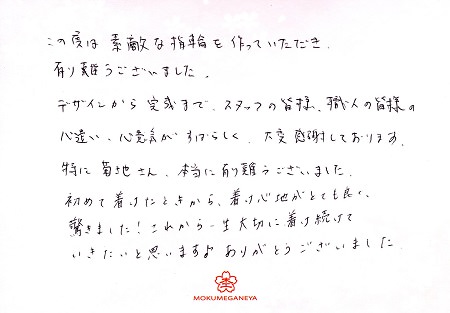 この度は素敵な指輪を作っていただき、
有り難うございました。
デザインから完成まで、スタッフの皆様、職人の皆様の
心遣い、心意気がすばらしく、大変感謝しております。
特に菊地さん、本当に有り難うございました。
初めて着けたときから、着け心地がとても良く、
驚きました!これから一生大切に着け続けて
いきたいと思いますよ ありがとうございました
MOKUMEGANEYA